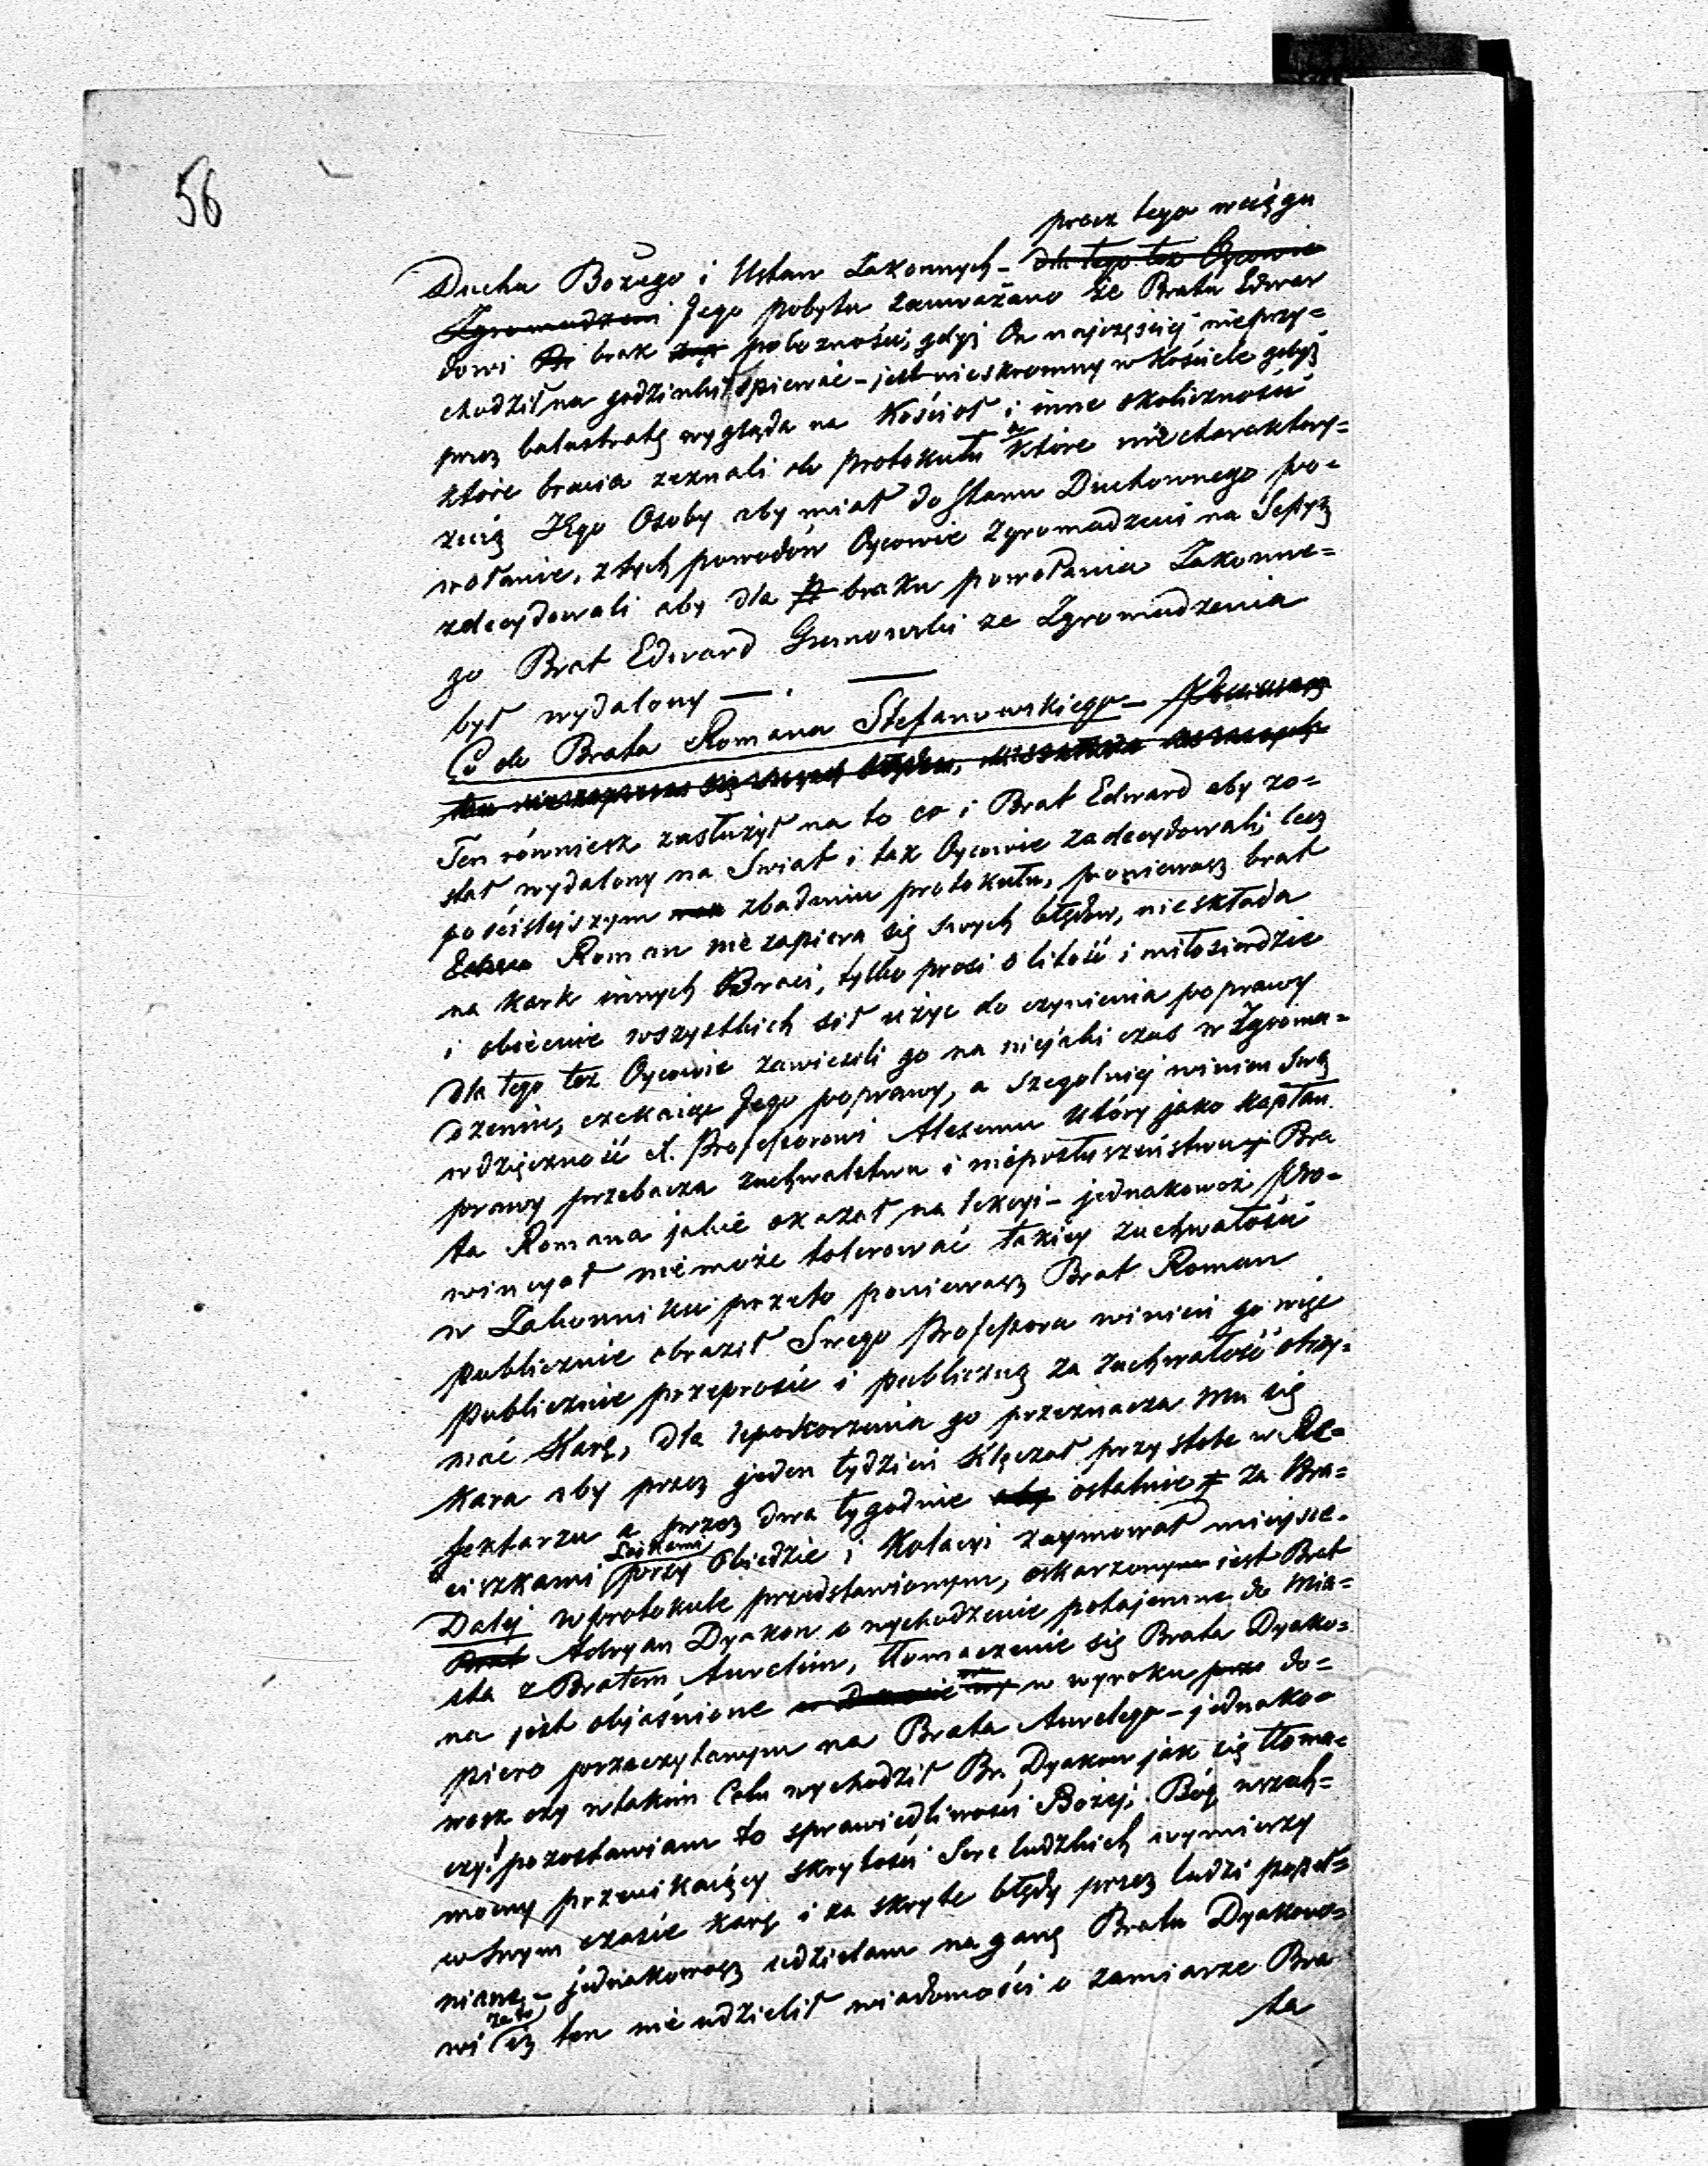 56
przez tego wciągu
Ducha Bożego i Ustaw Zakonnych – dla tego też Oycowie
Zgromadzeni Jego pobytu zauważano że Bratu Edwar
dowi brak pobożności, gdyż On najczęściej nieprzy=
chodził na godzinki śpiewać – jest nieskromny w Kościele gdyż
przez balustratę wygląda na Kościoł i inne okoliczności
które bracia zeznali do protokułu a które nie charaktery=
zcią Jego Osoby aby miał do Stanu Duchownego po=
wołanie, z tych powodów Oycowie Zgromadzeni na Sessyą
zdecydowali aby dla braku powołania Zakonne=
go Brat Edward ze Zgromadzenia
był wydalony – . –
Co do Brata Romana Stefanowskiego –
Ten równiesz zasłużył na to co i Brat Edward aby zo=
stał wydalony na Swiat i tak Oycowie zadecydowali, lecz
po ściślejszym zbadaniu protokułu, poniewasz brat
Roman nie zapiera się swych błędów, nie składa
na kark innych Braci, tylko prosi o litość i miłosierdzie
i obiecuie wszystkich sił użyc do czynienia poprawy
dla tego też Oycowie zawiesili go na niejaki czas w Zgroma=
dzeniu, czekaiąc Jego poprawy, a szegolniej winien swą
wdzięczność X. Professorowi Alexemu który jako kapłan
prawy przebacza zuchwalstwu i nieposłuszeństwu Bra
ta Romana jakie okazał na lekcyi – jednakowoż Pro=
wincyał nie może tolerować takiey zuchwałości
w Zakonniku przeto poniewasz Brat Roman
publicznie obraził Swego Professora winien go więc
publicznie przeprosić i publiczną za zuchwałość otrzy=
mać Karę, dla upokorzenia go przeznacza mu się
kara aby przez jeden tydzień klęczał przy stole w Re=
fektarzu a przez dwa tygodnie aby ostatnie za Bra=
ciszkami Laikami przy Obiedzie i Kolacyi zaymował mieysce.
Daley w protokule przedstawionym, oskarzonym jest Brat
Brat Adryan Dyakon o wychodzenie potajemne do mia=
sta z Bratem Aurelim, tłomaczenie się Brata Dyako=
na jest objaśnione w wyroku do=
piero przeczytanym na Brata Aurelego – jednako=
wosz czy w takim Celu wychodził Br. Dyakon jak się tłoma=
czy! pozostawiam to sprawiedliwości Bożej, Bóg wszech=
mocny przenikaiący skrytości Serc ludzkich wymierzy
w swym czasie karę i za skryte błędy przez ludzi popeł=
niane, – jednakowasz udzielam naganę Bratu Dyakono=
wi za to iż ten nie udzielił wiadomości o zamiarze Bra
ta